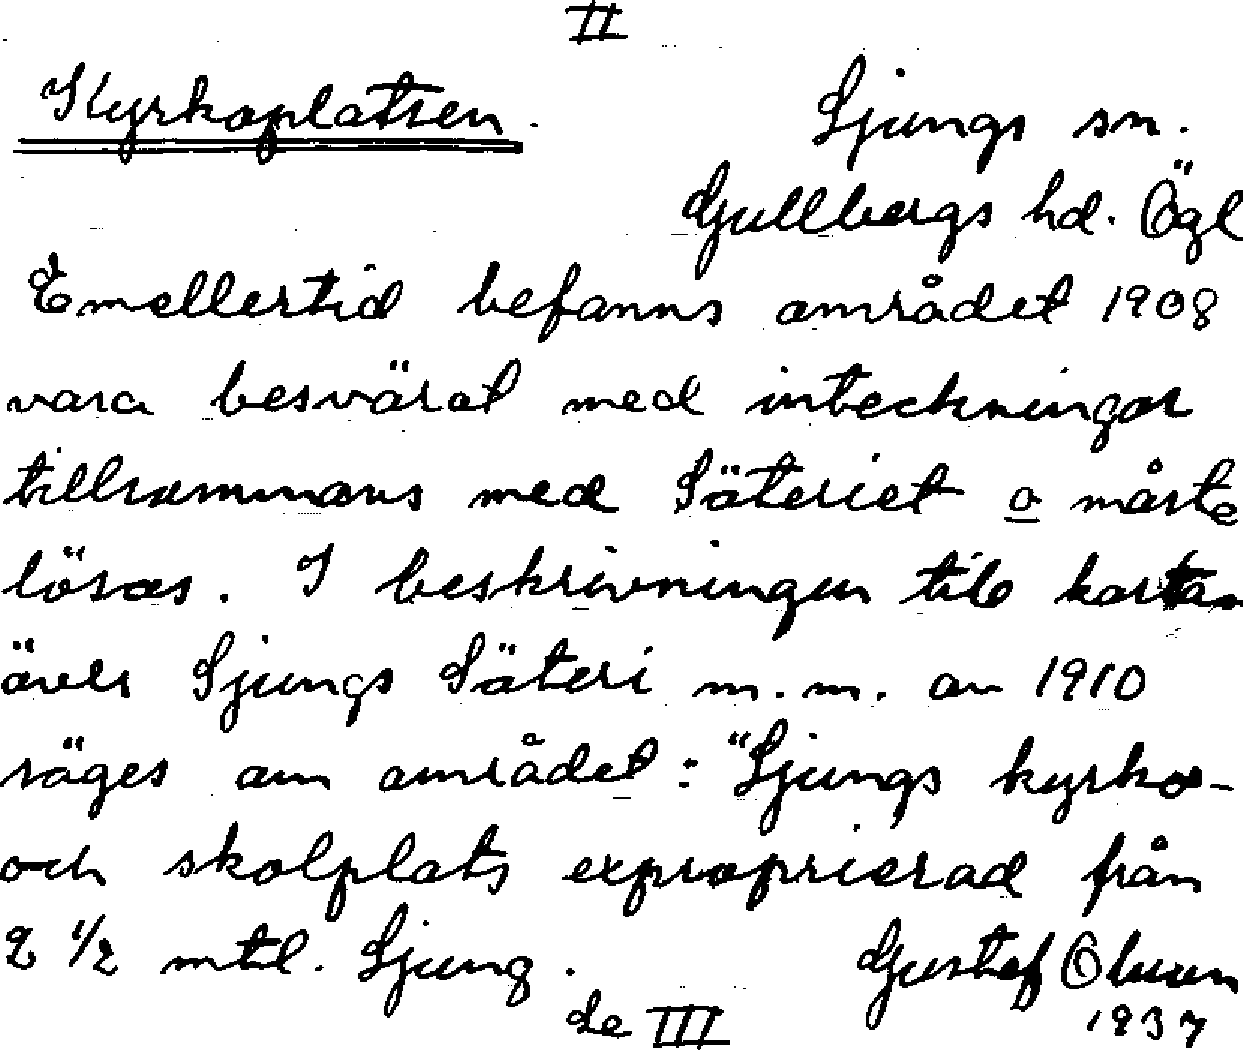 II
Kyrkoplatsen.
Ljungs sn.
Gullbergs hd. Ögl
Emellertid befanns området 1908
vara besvärat med inteckningar
tillsammans med Säteriet o måste
lösas. I beskrivningen till kartan
över Ljungs Säteri m.m. av 1910
säges om området: "Ljungs kyrko-
och skolplats exproprierad från
2 1/2 mtl. Ljung.
Gustef Olsson
1937
Se III